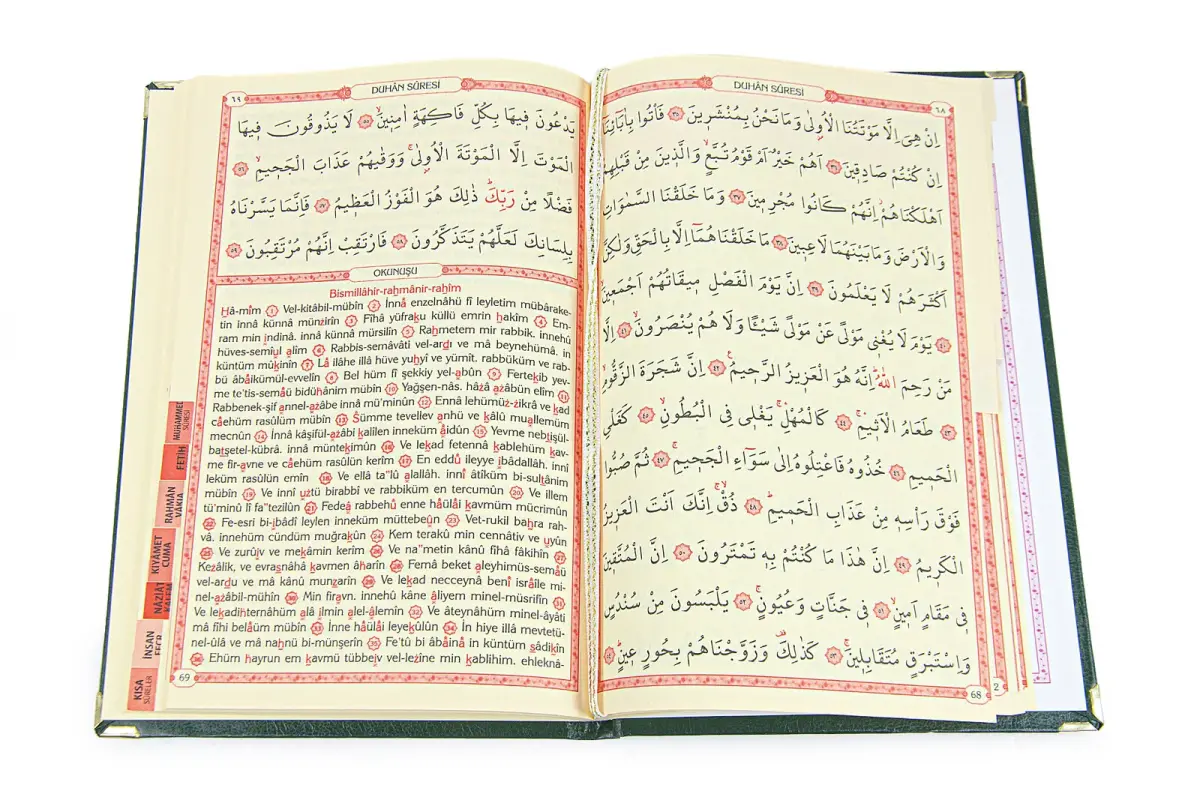 DUHÂN SÛRESİ
٦٨
اِنْ هِيَ اِلَّا مَوْتَتُنَا الْاُو۫لٰى وَمَا نَحْنُ بِمُنْشَر۪ينَ ٣٥ فَأْتُوا بِاٰبَٓائِنَٓا
اِنْ كُنْتُمْ صَادِق۪ينَ ٣٦ اَهُمْ خَيْرٌ اَمْ قَوْمُ تُبَّعٍۙ وَالَّذ۪ينَ مِنْ قَبْلِهِمْ
اَهْلَكْنَاهُمْۘ اِنَّهُمْ كَانُوا مُجْرِم۪ينَ ٣٧ وَمَا خَلَقْنَا السَّمٰوَاتِ
وَالْاَرْضَ وَمَا بَيْنَهُمَا لَاعِب۪ينَ ٣٨ مَا خَلَقْنَاهُمَٓا اِلَّا بِالْحَقِّ وَلٰكِنَّ
اَكْثَرَهُمْ لَا يَعْلَمُونَ ٣٩ اِنَّ يَوْمَ الْفَصْلِ م۪يقَاتُهُمْ اَجْمَع۪ينَ
٤٠ يَوْمَ لَا يُغْن۪ي مَوْلًى عَنْ مَوْلًى شَيْـًٔا وَلَا هُمْ يُنْصَرُونَ ٤١ اِلَّا
مَنْ رَحِمَ اللّٰهُۜ اِنَّهُ هُوَ الْعَز۪يزُ الرَّح۪يمُ ٤٢ اِنَّ شَجَرَةَ الزَّقُّومِ
٤٣ طَعَامُ الْاَث۪يمِ ٤٤ كَالْمُهْلِۚ يَغْل۪ي فِي الْبُطُونِ ٤٥ كَغَلْيِ
الْحَم۪يمِ ٤٦ خُذُوهُ فَاعْتِلُوهُ اِلٰى سَوَٓاءِ الْجَح۪يمِ ٤٧ ثُمَّ صُبُّوا
فَوْقَ رَأْسِه۪ مِنْ عَذَابِ الْحَم۪يمِ ٤٨ ذُقْۙ اِنَّكَ اَنْتَ الْعَز۪يزُ
الْكَر۪يمُ ٤٩ اِنَّ هٰذَا مَا كُنْتُمْ بِه۪ تَمْتَرُونَ ٥٠ اِنَّ الْمُتَّق۪ينَ
ف۪ي مَقَامٍ اَم۪ينٍ ٥١ ف۪ي جَنَّاتٍ وَعُيُونٍ ٥٢ يَلْبَسُونَ مِنْ سُنْدُسٍ
وَاِسْتَبْرَقٍ مُتَقَابِل۪ينَ ٥٣ كَذٰلِكَ۠ وَزَوَّجْنَاهُمْ بِحُورٍ ع۪ينٍ ٥٤
68
2
DUHÂN SÛRESİ
٦٩
يَدْعُونَ ف۪يهَا بِكُلِّ فَاكِهَةٍ اٰمِن۪ينَ ٥٥ لَا يَذُوقُونَ ف۪يهَا
الْمَوْتَ اِلَّا الْمَوْتَةَ الْاُو۫لٰىۚ وَوَقٰيهُمْ عَذَابَ الْجَح۪يمِ ٥٦
فَضْلًا مِنْ رَبِّكَۜ ذٰلِكَ هُوَ الْفَوْزُ الْعَظ۪يمُ ٥٧ فَاِنَّمَا يَسَّرْنَاهُ
بِلِسَانِكَ لَعَلَّهُمْ يَتَذَكَّرُونَ ٥٨ فَارْتَقِبْ اِنَّهُمْ مُرْتَقِبُونَ ٥٩
OKUNUŞU
Bismillâhir-rahmânir-rahîm
Hâ-mîm 1 Vel-kitâbil-mübîn 2 İnnâ enzelnâhü fî leyletim mübârake-
tin innâ künnâ münzirîn 3 Fîhâ yüfraku küllü emrin hakîm 4 Em-
ram min ındinâ. innâ künnâ mürsilîn 5 Rahmetem mir rabbik. innehû
hüves-semîul alîm 6 Rabbis-semâvâti vel-ardı ve mâ beynehümâ. in
küntüm mûkınîn 7 Lâ ilâhe illâ hüve yuhyî ve yümît. rabbüküm ve rab-
bü âbâikümül-evvelîn 8 Bel hüm fî şekkiy yel-abûn 9 Fertekıb yev-
me te'tis-semâü bidühânim mübîn 10 Yağşen-nâs. hâzâ azâbün elîm 11
Rabbenek-şif annel-azâbe innâ mü'minûn 12 Ennâ lehümüz-zikrâ ve kad
câehüm rasûlüm mübîn 13 Sümme tevellev anhü ve kâlû muallemüm
mecnûn 14 İnnâ kâşifül-azâbi kalîlen inneküm âidûn 15 Yevme nebtışül-
batşetel-kübrâ. innâ müntekımûn 16 Ve lekad fetennâ kablehüm kav-
me fir-avne ve câehüm rasûlün kerîm 17 En eddû ileyye ıbâdallâh. innî
leküm rasûlün emîn 18 Ve ellâ ta"lû alallâh. innî âtîküm bi-sultânim
mübîn 19 Ve innî uztü birabbî ve rabbiküm en tercumûn 20 Ve illem
tü'minû lî fa"tezilûn 21 Fedeâ rabbehû enne hâülâi kavmüm mücrimûn
22 Fe-esri bi-ıbâdî leylen inneküm müttebeûn 23 Vet-rukil bahra rah-
vâ. innehüm cündüm muğrakûn 24 Kem terakû min cennâtiv ve uyûn
25 Ve zurûıv ve mekâmin kerîm 26 Ve na"metin kânû fîhâ fâkihîn 27
Kezâlik, ve evrasnâhâ kavmen âharîn 28 Femâ beket aleyhimüs-semâü
vel-ardu ve mâ kânû munzarîn 29 Ve lekad necceynâ benî isrâîle mi-
nel-azâbil-mühîn 30 Min firavn. innehû kâne âliyem minel-müsrifîn 31
Ve lekadihternâhüm alâ ılmin alel-âlemîn 32 Ve âteynâhüm minel-âyâti
mâ fîhi belâüm mübîn 33 İnne hâülâi leyekûlûn 34 İn hiye illâ mevtetü-
nel-ûlâ ve mâ nahnü bi-münşerîn 35 Fe'tû bi âbâinâ in küntüm sâdikîn
36 Ehüm hayrun em kavmü tübbeıv vel-lezîne min kablihim. ehleknâ-
69
MUHAMMED
SÛRESİ
FETİH
RAHMÂN
VÂKIA
KIYÂMET
CUMA
NÂZİÂT
İNSAN
FECR
KISA
SÛRELER